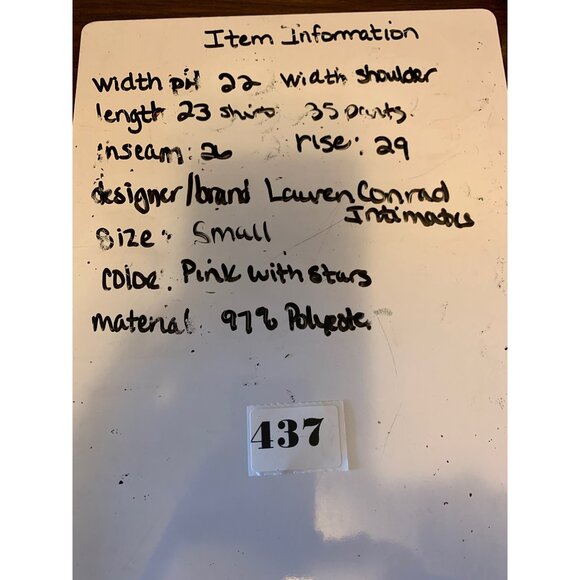 Item Information
width pit 22 width shoulder
length 23 shirt 35 pants
inseam: 26 rise: 29
designer/brand Lauren Conrad
Intimates
size: Small
color: Pink with stars
material 97% Polyester
437